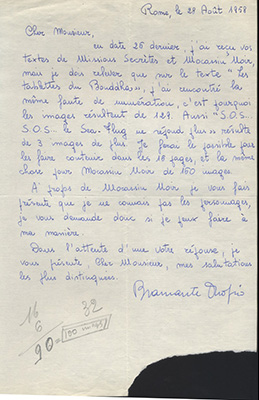 Rome, le 28 Août 1958
Cher Monsieur,
en date 26 dernier j'ai reçu vos
textes de Missions Secrètes et Mocassin Noir,
mais je dois relever que sur le texte "Les
tablettes du Bouddha", j'ai rencontré la
même faute de numération, c'est pourquoi
les images résultent de 128. Aussi "S.O.S...
S.O.S... le Sea-Flug ne répond plus" résulte
de 3 images de plus. Je ferai le possible pour
les faire contenir dans les 18 pages, et la même
chose pour Mocassin Noir de 160 images.
A propos de Mocassin Noir je vous fais
présente que je ne connais pas les personnages,
je vous demande donc si je peux faire à
ma manière.
Dans l'attente d'une Votre réponse, je
vous présente Cher Monsieur, mes salutations
les plus distinguées.
Bramante
16
6
32
90